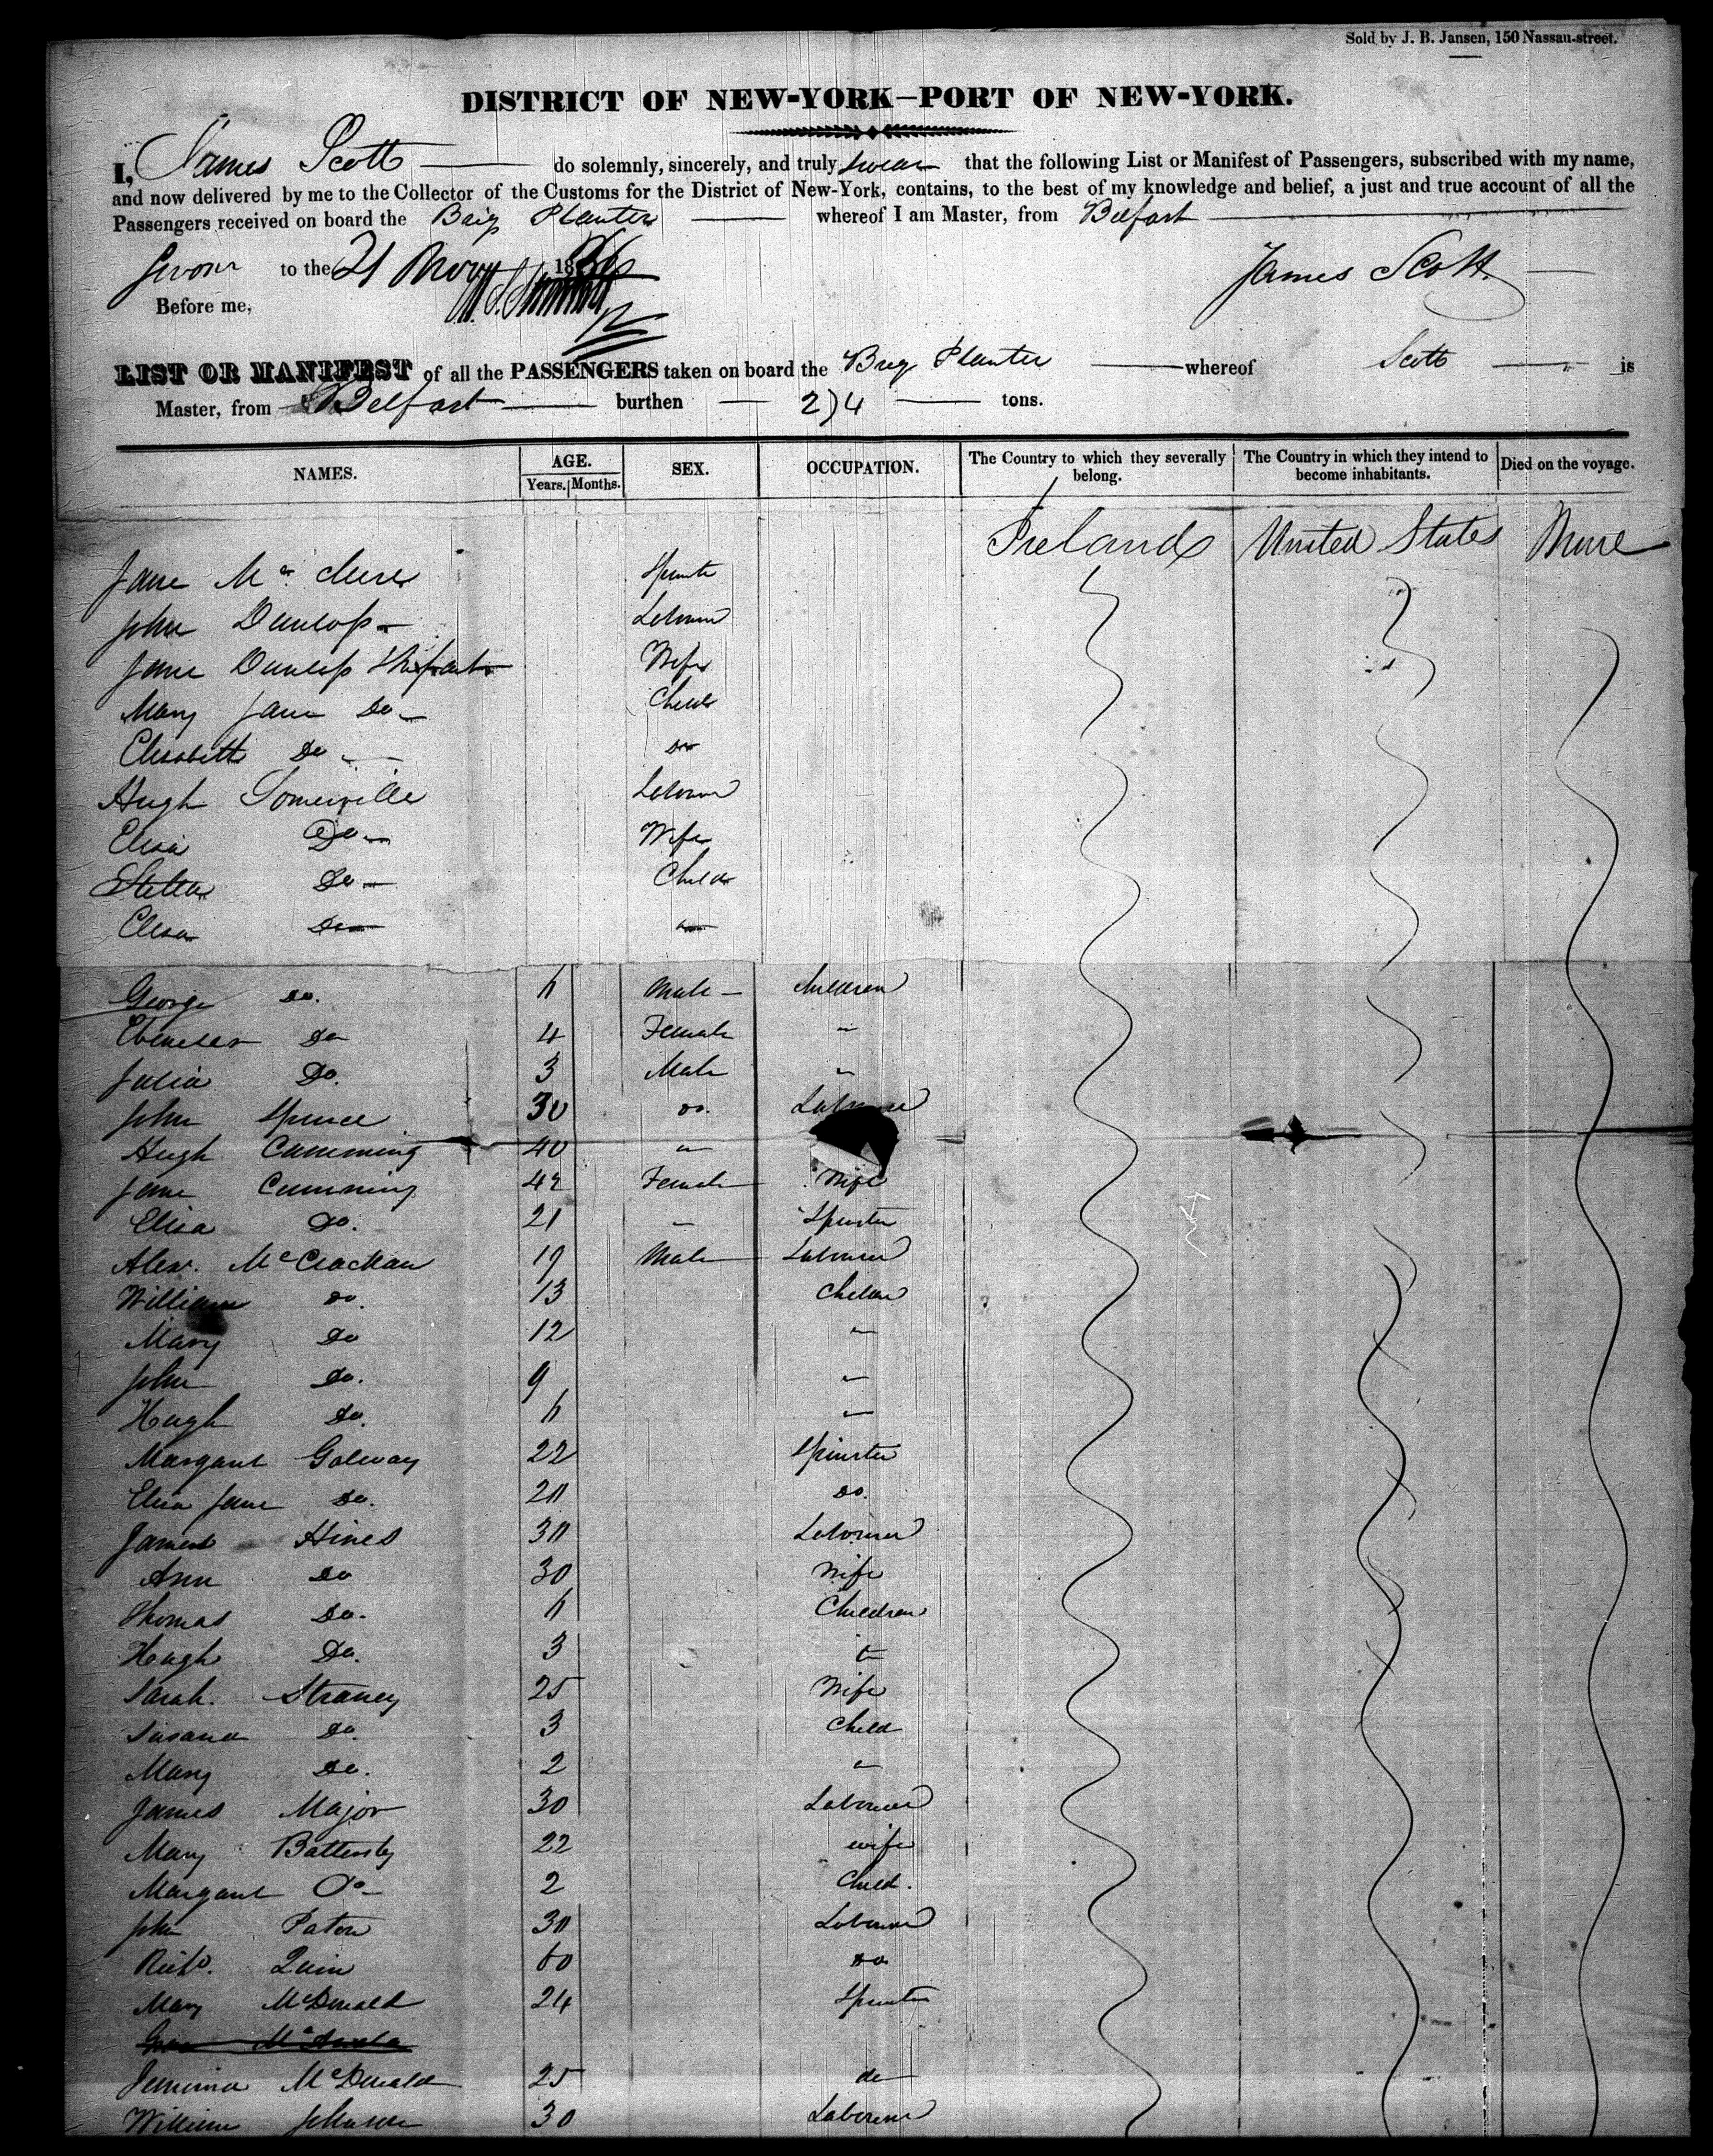 Sold by J. B. Jansen, 150 Nassau-street.
DISTRICT OF NEW-YORK—PORT OF NEW-YORK.
I, James Scott do solemnly, sincerely, and truly swear that the following List or Manifest of Passengers, subscribed with my name,
and now delivered by me to the Collector of the Customs for the District of New-York, contains, to the best of my knowledge and belief, a just and true account of all the
Passengers received on board the Brig Planter whereof I am Master, from Belfast
Sworn to the 21 Nov 1836 James Scott
Before me,
LIST OR MANIFEST of all the PASSENGERS taken on board the Brig Planter whereof Scott is
Master, from Belfast burthen 274 tons.
NAMES. AGE. Years. Months. SEX. OCCUPATION. The Country to which they severally belong. The Country in which they intend to become inhabitants. Died on the voyage.
Ireland United States None
Jane Mc Clure Spinster
John Dunlop Labourer
Jane Dunlop Wife
Mary Jane Do Child
Elisabeth Do Do
Hugh Somerville Labourer
Elisa Do Wife
Do Child
Elisa Do
George Do. Male Children
Ebenezer Do 4 Female "
Julia Do. 3 Male "
John Spence 30 Do. Labourer
Hugh Cumming 40 "
Jane Cumming 42 Female Wife
Elisa Do. 21 " Spinster
Alexr. McCrackan 19 Male Labourer
William Do. 13 Children
Mary Do 12 "
John Do. 9 "
Hugh Do. "
Margaret Galway 22 Spinster
Eliza Jane Do. 20 Do.
James Hines 30 Labourer
Ann Do 30 Wife
Thomas Do. Children
Hugh Do. 3
Sarah Straney 25 Wife
Susana Do. 3 Child
Mary Do. 2 "
James Major 30 Labourer
Mary Battersby 22 wife
Margaret Do 2 Child.
John Paton 30 Labourer
Richd. Quin 60 Do
Mary McDonald 24 Spinster
Jemima McDonald 25 do
William Johnson 30 Labourer